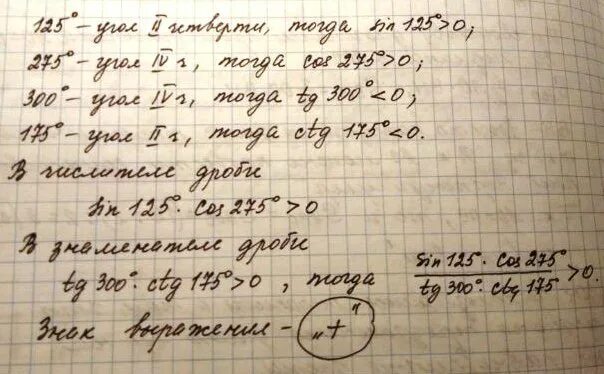 125° – угол II четверти, тогда sin 125° > 0;
275° – угол IV г, тогда cos 275° > 0;
300° – угол IV г, тогда tg 300° < 0;
175° – угол II г, тогда ctg 175° < 0.
В числителе дроби
sin 125° · cos 275° > 0
В знаменателе дроби
tg 300° · ctg 175° > 0, тогда
sin 125 · cos 275°
tg 300° · ctg 175 > 0.
Знак выражения – „+"